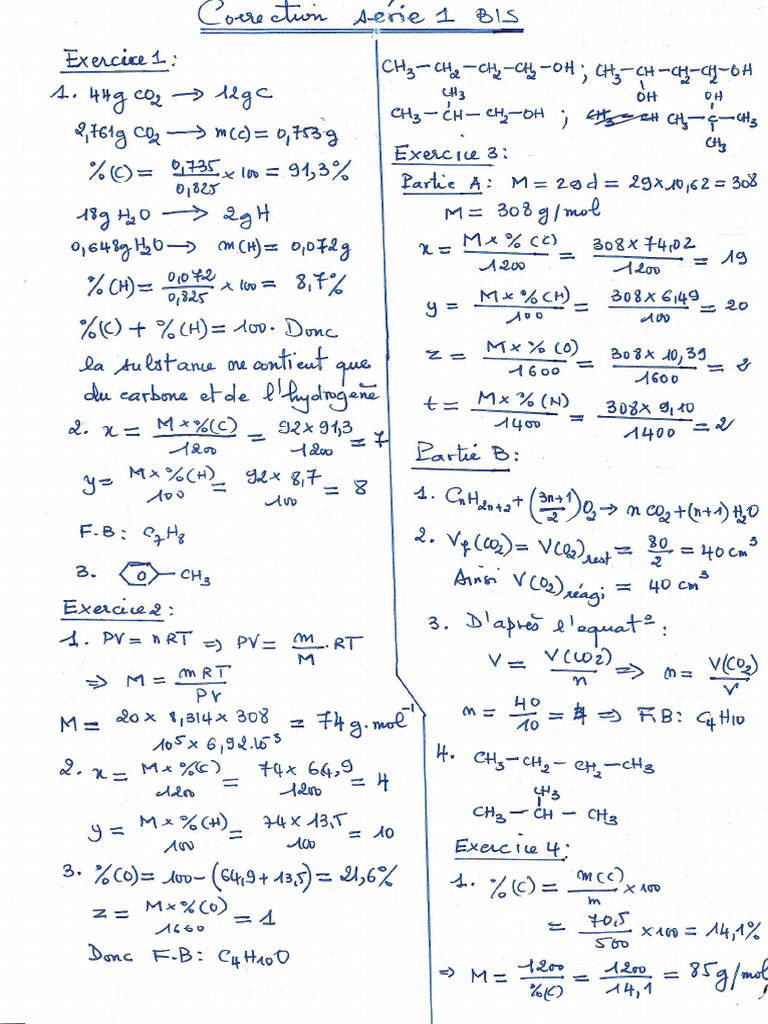 Correction série 1 BIS
Exercice 1 :
1. 44g CO2 → 12g C
2,761g CO2 → m(C) = 0,753g
%(C) = 0,735/0,825 × 100 = 91,3%
18g H2O → 2g H
0,648g H2O → m(H) = 0,072g
%(H) = 0,072/0,825 × 100 = 8,7%
%(C) + %(H) = 100. Donc
la substance ne contient que
du carbone et de l'hydrogène
2. x = M×%(C)/1200 = 92×91,3/1200 = 7
y = M×%(H)/100 = 92×8,7/100 = 8
F.B : C7H8
3. –CH3
Exercice 2 :
1. PV = nRT ⇒ PV = m/M . RT
⇒ M = mRT/PV
M = 20 × 8,314 × 308/10^5 × 6,92.10^-3 = 74 g.mol^-1
2. x = M×%(C)/1200 = 74 × 64,9/1200 = 4
y = M×%(H)/100 = 74 × 13,5/100 = 10
3. %(O) = 100 – (64,9 + 13,5) = 21,6%
z = M×%(O)/1600 = 1
Donc F.B : C4H10O
CH3–CH2–CH2–CH2–OH ; CH3–CH–CH2–CH2–OH
CH3 OH OH
CH3–CH–CH2–OH ; CH3–C–CH3
CH3
Exercice 3 :
Partie A : M = 29d = 29×10,62 = 308
M = 308 g/mol
x = M×%(C)/1200 = 308×74,02/1200 = 19
y = M×%(H)/100 = 308×6,49/100 = 20
z = M×%(O)/1600 = 308×10,39/1600 = 2
t = M×%(N)/1400 = 308×9,10/1400 = 2
Partie B :
1. CnH2n+2 + (3n+1/2)O2 → n CO2 + (n+1) H2O
2. Vf(CO2) = V(O2)rest = 80/2 = 40 cm³
Ainsi V(O2)réagi = 40 cm³
3. D'après l'équat° :
V = V(CO2)/n ⇒ n = V(CO2)/V
n = 40/10 = 4 ⇒ F.B : C4H10
4. CH3–CH2–CH2–CH3
CH3
CH3–CH–CH3
Exercice 4 :
1. %(C) = m(C)/m × 100
= 70,5/500 × 100 = 14,1%
⇒ M = 1200/%(C) = 1200/14,1 = 85 g/mol